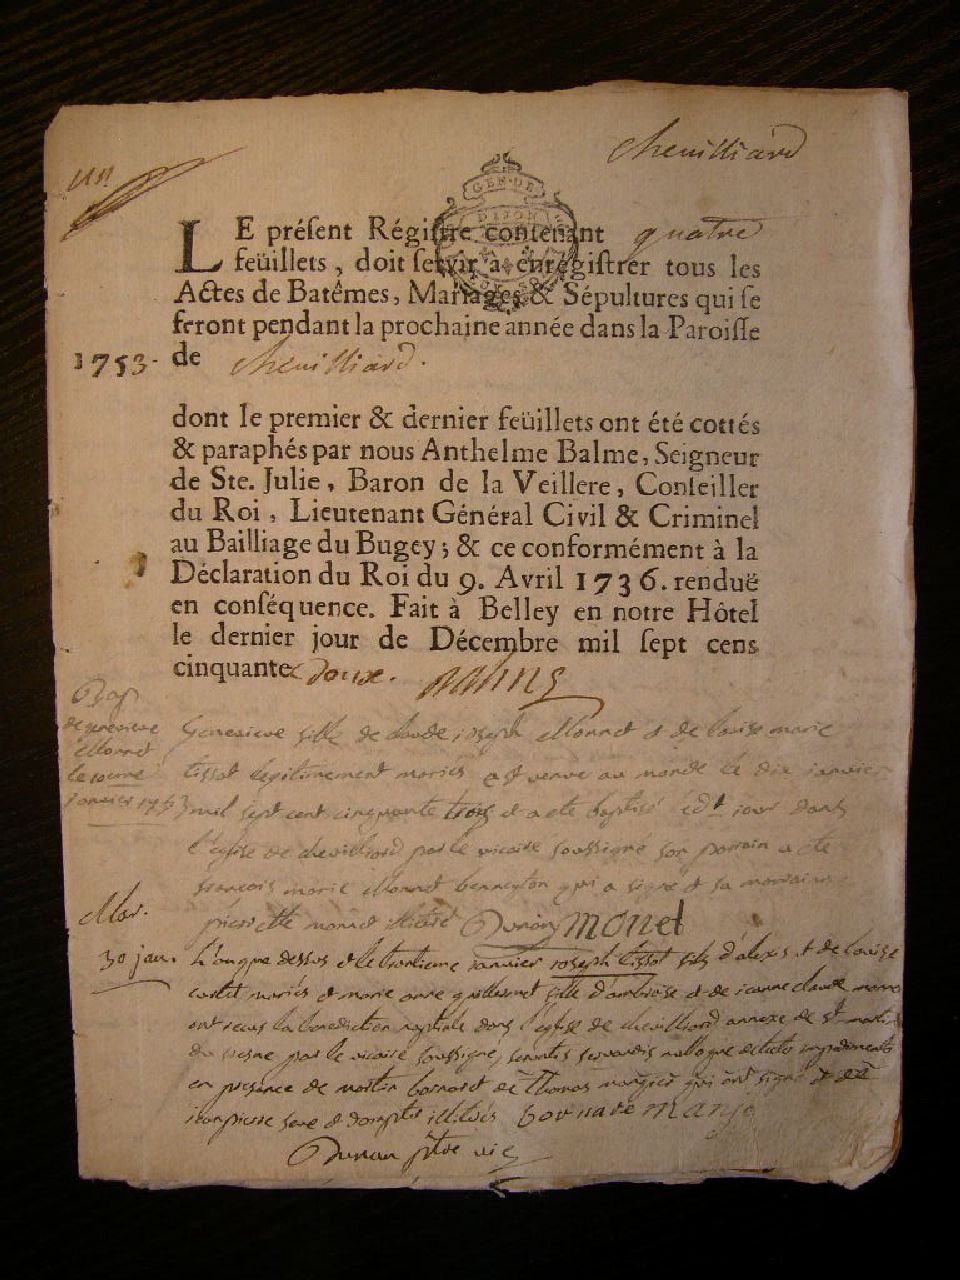 un
chevilliard
GEN·DE
DIJON
LE préſent Régiſtre contenant quatre
feüillets, doit ſervir à enrégiſtrer tous les
Actes de Batêmes, Mariages & Sépultures qui ſe
feront pendant la prochaine année dans la Paroiſſe
1753. de chevilliard.
dont le premier & dernier feüillets ont été cottés
& paraphés par nous Anthelme Balme, Seigneur
de Ste. Julie, Baron de la Veillere, Conſeiller
du Roi, Lieutenant Général Civil & Criminel
au Bailliage du Bugey; & ce conformément à la
Déclaration du Roi du 9. Avril 1736. renduë
en conſéquence. Fait à Belley en notre Hôtel
le dernier jour de Décembre mil ſept cens
cinquante douze. Balme
Bap
de genevieve
Monnet
le 10eme
janvier 1753
genevieve fille de claude joseph Monnet et de louise marie
tissot legitimement mariés est venue au monde le dix janvier
mil sept cent cinquante trois et a eté baptisé edt jour dans
l'église de chevilliard par le vicaire soussigné son parrain a eté
françois marie Monnet qui a signé et sa marraine
pierrette monnet illitéré Dunan monet
Mar.
30 janv.
L'an que dessus et le trentieme janvier joseph tissot fils d'alexis et de louise
mariés et marie anne guillermet fille d'ambroise et de jeanne claude
ont recus la benediction nuptiale dans l'église de chevilliard annexe de St martin
du fresne par le vicaire soussigné, servatis servandis nulloque detecto impedimento
en presence de martin bornard de Thomas qui ont signé et de
jeanpierre et illitérés bornard manje
Dunan ptre vic